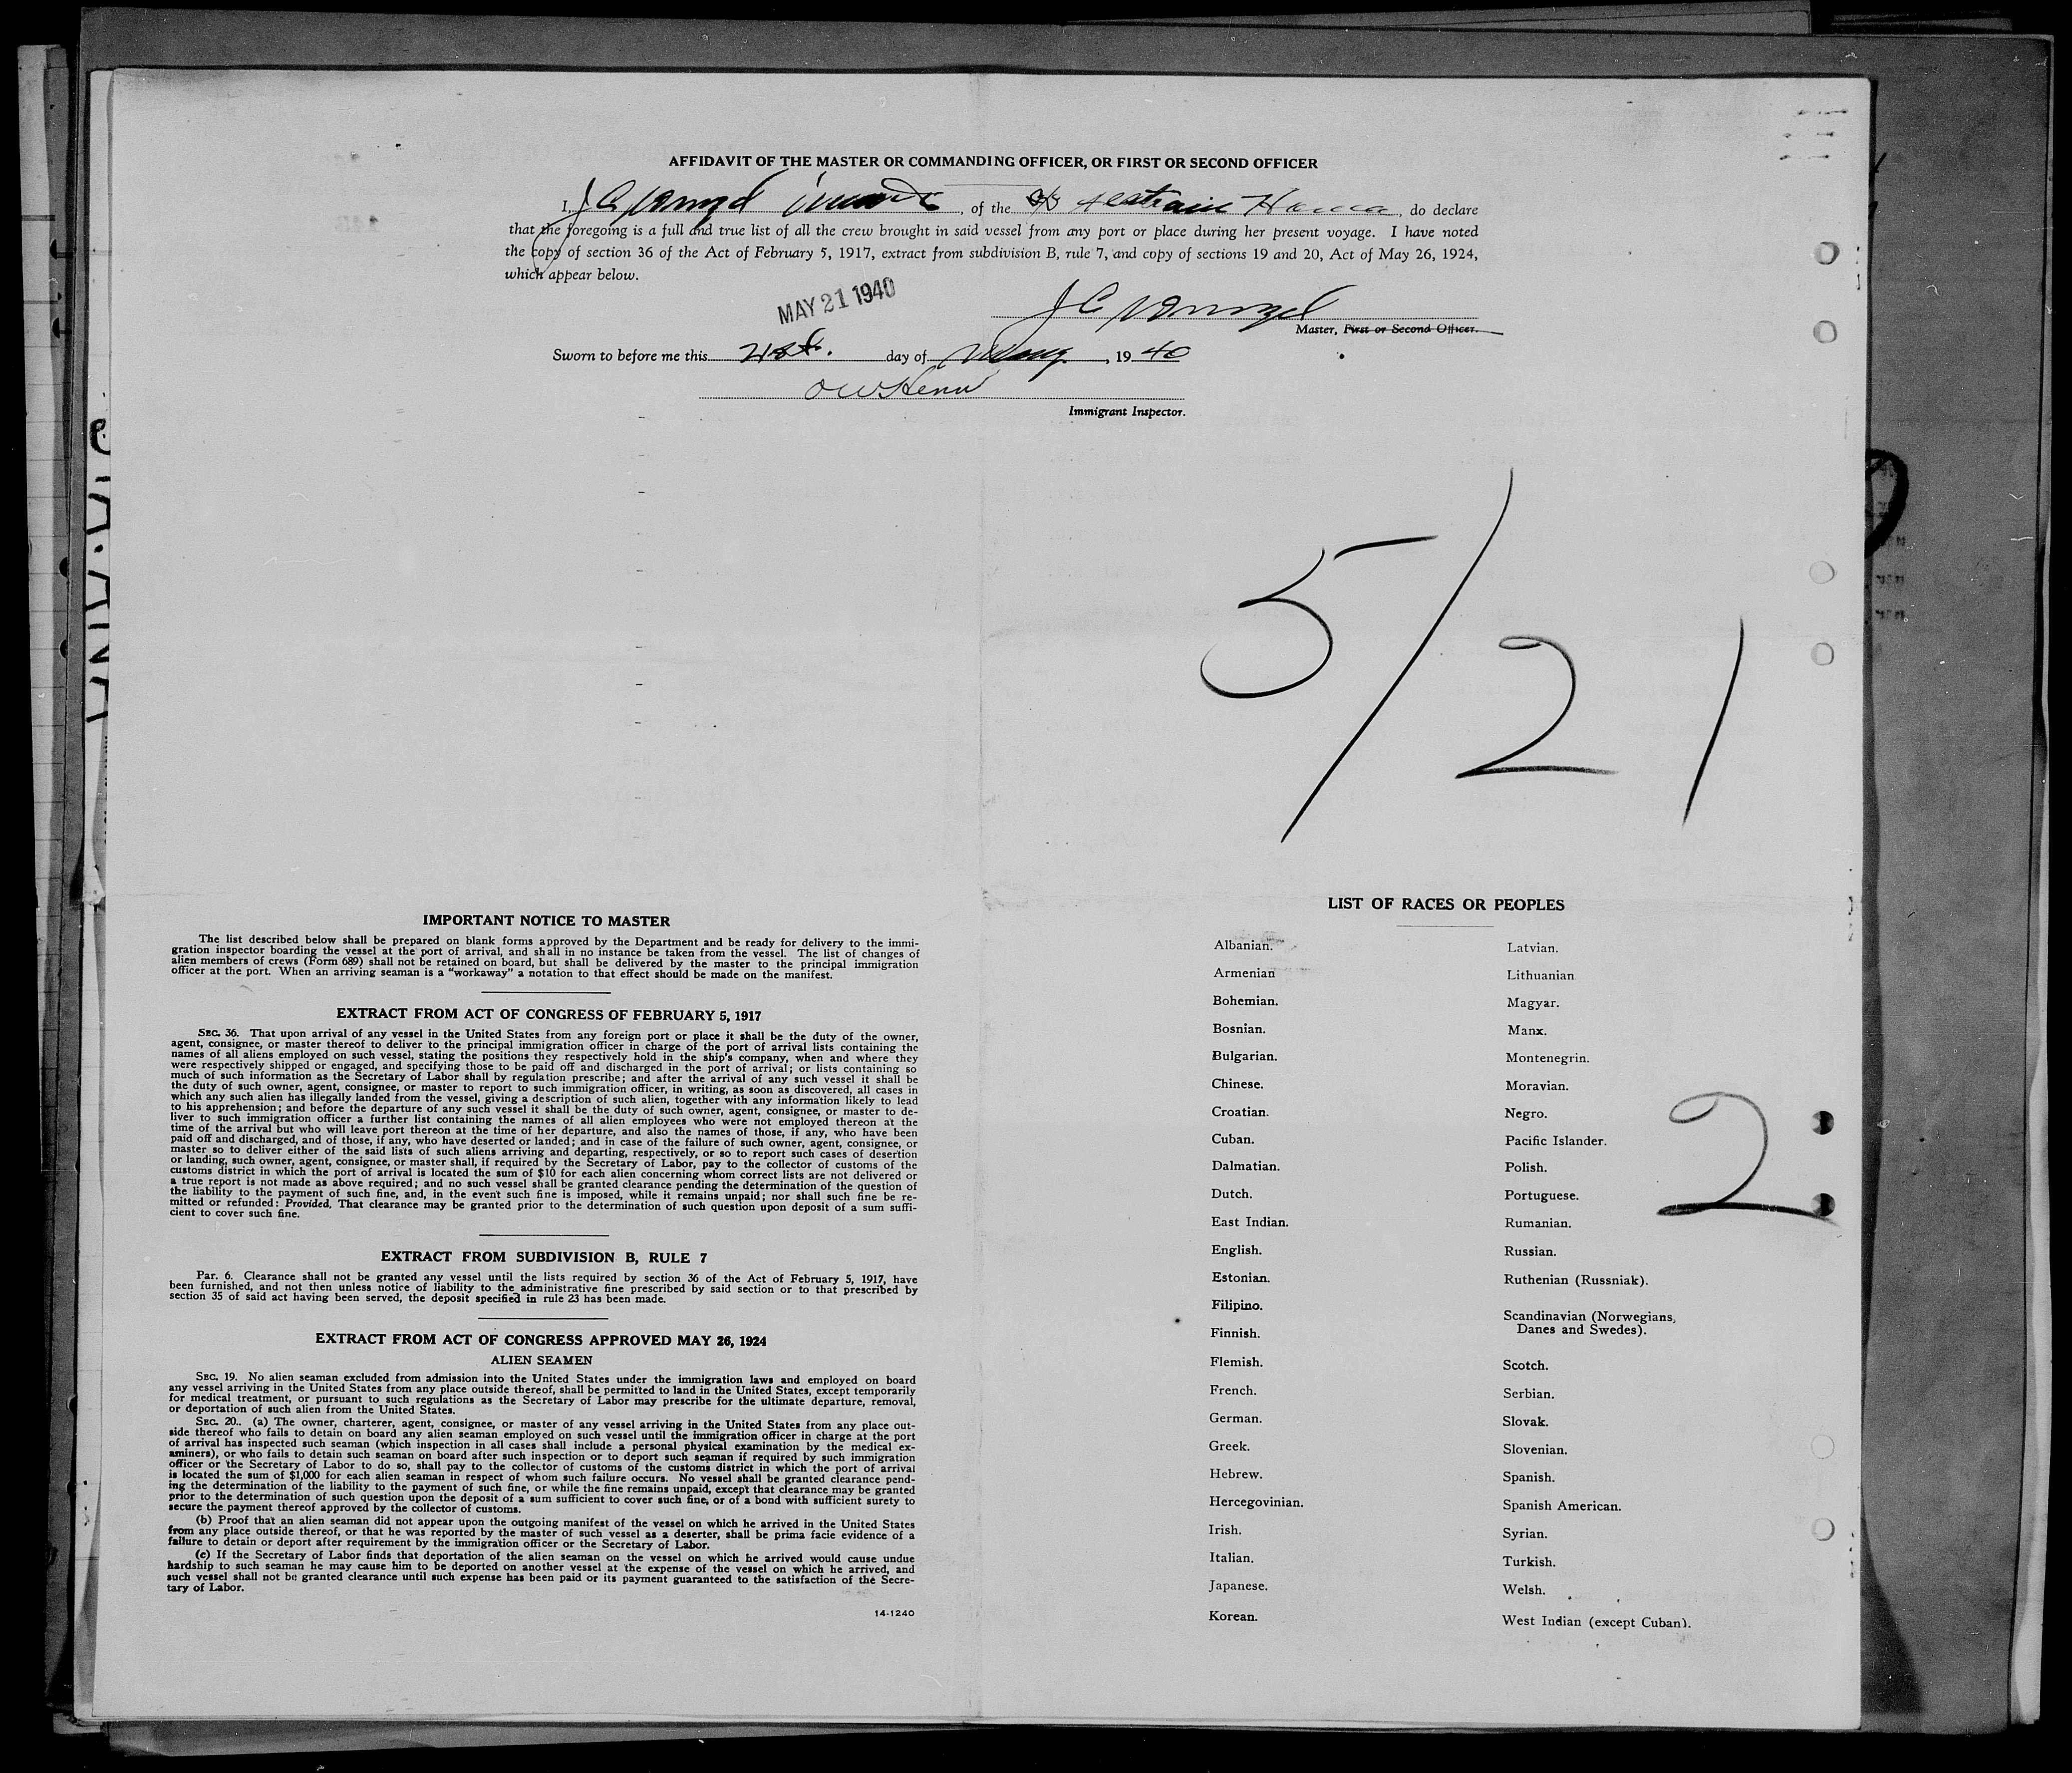 AFFIDAVIT OF THE MASTER OR COMMANDING OFFICER, OR FIRST OR SECOND OFFICER
I, J C , of the S/S , do declare
that the foregoing is a full and true list of all the crew brought in said vessel from any port or place during her present voyage. I have noted
the copy of section 36 of the Act of February 5, 1917, extract from subdivision B, rule 7, and copy of sections 19 and 20, Act of May 26, 1924,
which appear below.
MAY 21 1940
J C
Master, First or Second Officer.
Sworn to before me this 21st. day of May, 1940
Immigrant Inspector.
5/21
IMPORTANT NOTICE TO MASTER
The list described below shall be prepared on blank forms approved by the Department and be ready for delivery to the immi-
gration inspector boarding the vessel at the port of arrival, and shall in no instance be taken from the vessel. The list of changes of
alien members of crews (Form 689) shall not be retained on board, but shall be delivered by the master to the principal immigration
officer at the port. When an arriving seaman is a "workaway" a notation to that effect should be made on the manifest.
EXTRACT FROM ACT OF CONGRESS OF FEBRUARY 5, 1917
SEC. 36. That upon arrival of any vessel in the United States from any foreign port or place it shall be the duty of the owner,
agent, consignee, or master thereof to deliver to the principal immigration officer in charge of the port of arrival lists containing the
names of all aliens employed on such vessel, stating the positions they respectively hold in the ship's company, when and where they
were respectively shipped or engaged, and specifying those to be paid off and discharged in the port of arrival; or lists containing so
much of such information as the Secretary of Labor shall by regulation prescribe; and after the arrival of any such vessel it shall be
the duty of such owner, agent, consignee, or master to report to such immigration officer, in writing, as soon as discovered, all cases in
which any such alien has illegally landed from the vessel, giving a description of such alien, together with any information likely to lead
to his apprehension; and before the departure of any such vessel it shall be the duty of such owner, agent, consignee, or master to de-
liver to such immigration officer a further list containing the names of all alien employees who were not employed thereon at the
time of the arrival but who will leave port thereon at the time of her departure, and also the names of those, if any, who have been
paid off and discharged, and of those, if any, who have deserted or landed; and in case of the failure of such owner, agent, consignee, or
master so to deliver either of the said lists of such aliens arriving and departing, respectively, or so to report such cases of desertion
or landing, such owner, agent, consignee, or master shall, if required by the Secretary of Labor, pay to the collector of customs of the
customs district in which the port of arrival is located the sum of $10 for each alien concerning whom correct lists are not delivered or
a true report is not made as above required; and no such vessel shall be granted clearance pending the determination of the question of
the liability to the payment of such fine, and, in the event such fine is imposed, while it remains unpaid; nor shall such fine be re-
mitted or refunded: Provided, That clearance may be granted prior to the determination of such question upon deposit of a sum suffi-
cient to cover such fine.
EXTRACT FROM SUBDIVISION B, RULE 7
Par. 6. Clearance shall not be granted any vessel until the lists required by section 36 of the Act of February 5, 1917, have
been furnished, and not then unless notice of liability to the administrative fine prescribed by said section or to that prescribed by
section 35 of said act having been served, the deposit specified in rule 23 has been made.
EXTRACT FROM ACT OF CONGRESS APPROVED MAY 26, 1924
ALIEN SEAMEN
SEC. 19. No alien seaman excluded from admission into the United States under the immigration laws and employed on board
any vessel arriving in the United States from any place outside thereof, shall be permitted to land in the United States, except temporarily
for medical treatment, or pursuant to such regulations as the Secretary of Labor may prescribe for the ultimate departure, removal,
or deportation of such alien from the United States.
SEC. 20.. (a) The owner, charterer, agent, consignee, or master of any vessel arriving in the United States from any place out-
side thereof who fails to detain on board any alien seaman employed on such vessel until the immigration officer in charge at the port
of arrival has inspected such seaman (which inspection in all cases shall include a personal physical examination by the medical ex-
aminers), or who fails to detain such seaman on board after such inspection or to deport such seaman if required by such immigration
officer or the Secretary of Labor to do so, shall pay to the collector of customs of the customs district in which the port of arrival
is located the sum of $1,000 for each alien seaman in respect of whom such failure occurs. No vessel shall be granted clearance pend-
ing the determination of the liability to the payment of such fine, or while the fine remains unpaid, except that clearance may be granted
prior to the determination of such question upon the deposit of a sum sufficient to cover such fine, or of a bond with sufficient surety to
secure the payment thereof approved by the collector of customs.
(b) Proof that an alien seaman did not appear upon the outgoing manifest of the vessel on which he arrived in the United States
from any place outside thereof, or that he was reported by the master of such vessel as a deserter, shall be prima facie evidence of a
failure to detain or deport after requirement by the immigration officer or the Secretary of Labor.
(c) If the Secretary of Labor finds that deportation of the alien seaman on the vessel on which he arrived would cause undue
hardship to such seaman he may cause him to be deported on another vessel at the expense of the vessel on which he arrived, and
such vessel shall not be granted clearance until such expense has been paid or its payment guaranteed to the satisfaction of the Secre-
tary of Labor.
14-1240
LIST OF RACES OR PEOPLES
Albanian.
Armenian
Bohemian.
Bosnian.
Bulgarian.
Chinese.
Croatian.
Cuban.
Dalmatian.
Dutch.
East Indian.
English.
Estonian.
Filipino.
Finnish.
Flemish.
French.
German.
Greek.
Hebrew.
Hercegovinian.
Irish.
Italian.
Japanese.
Korean.
Latvian.
Lithuanian
Magyar.
Manx.
Montenegrin.
Moravian.
Negro.
Pacific Islander.
Polish.
Portuguese.
Rumanian.
Russian.
Ruthenian (Russniak).
Scandinavian (Norwegians,
Danes and Swedes).
Scotch.
Serbian.
Slovak.
Slovenian.
Spanish.
Spanish American.
Syrian.
Turkish.
Welsh.
West Indian (except Cuban).
2